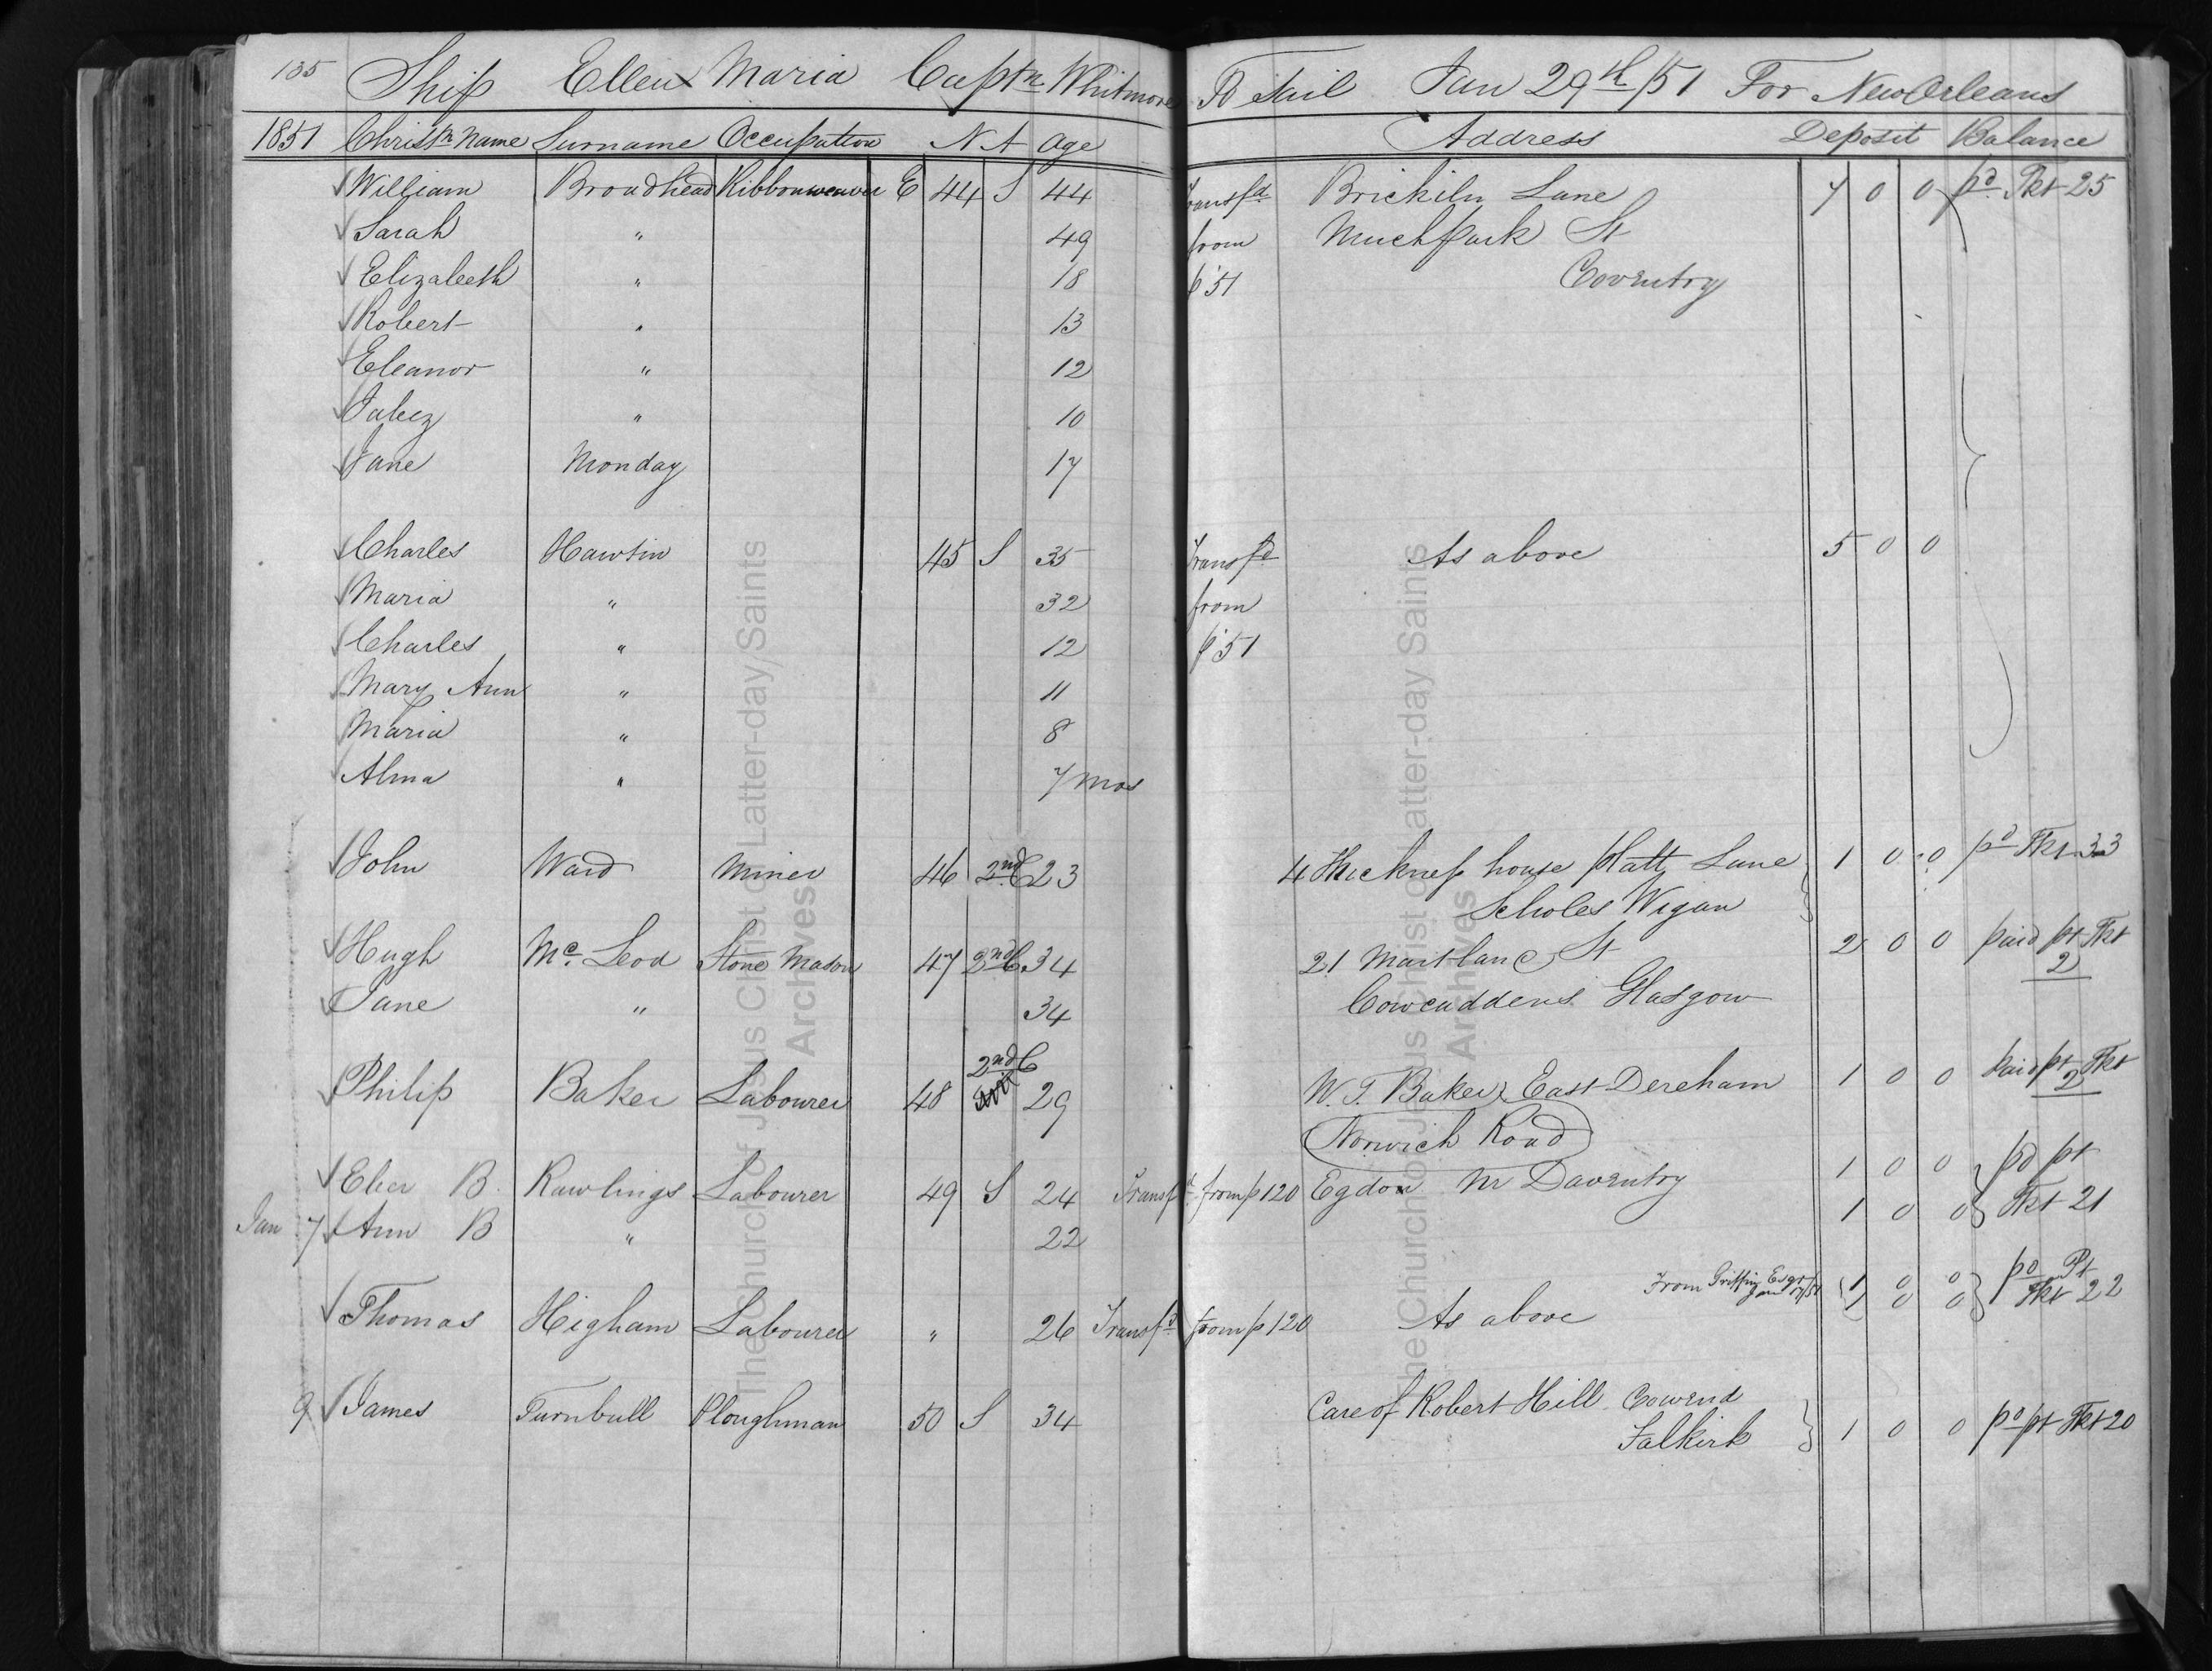 135 Ship Ellen Maria Captn Whitmore To Sail Jan 29th /51 For New Orleans
1851 Christn Name Surname Occupation N A Age Address Deposit Balance
William Broadhead Ribbonweaver E 44 S 44 Transfd Brickiln Lane 7 0 0 pd Tkt 25
Sarah " 49 from Muchpark St
Elizabeth " 18 p 51 Coventry
Robert " 13
Eleanor " 12
Jabez " 10
Jane Monday 17
Charles Hawtin 45 S 35 Transfd As above 5 0 0
Maria " 32 from
Charles " 12 p 51
Mary Ann " 11
Maria " 8
Alma " 7 mos
John Ward Miner 46 2nd C 23 4 Thickness house Platt Lane 1 0 0 pd Tkt 33
Scholes Wigan
Hugh Mc Leod Stone Mason 47 2nd C 34 21 Maitland St 2 0 0 paid pt Tkt
2
Jane " 34 Cowcaddens Glasgow
2nd C
Philip Baker Labourer 48 29 W. T. Baker East Dereham 1 0 0 paid pt Tkt
2
Norwich Road
Eber B. Rawlings Labourer 49 S 24 Transfd from p 120 Egdon Nr Daventry 1 0 0 pd pt
Jan 7 Ann B " 22 1 0 0 Tkt 21
From Griffin Esqr Jan 17/51 1 0 0 pd Pt
Thomas Higham Labourer " 26 Transfd from p 120 As above 1 0 0 Tkt 22
9 James Turnbull Ploughman 50 S 34 Care of Robert Hill Cowend
Falkirk 1 0 0 pd pt Tkt 20
The Church of Jesus Christ of Latter-day Saints
Archives
The Church of Jesus Christ of Latter-day Saints
Archives